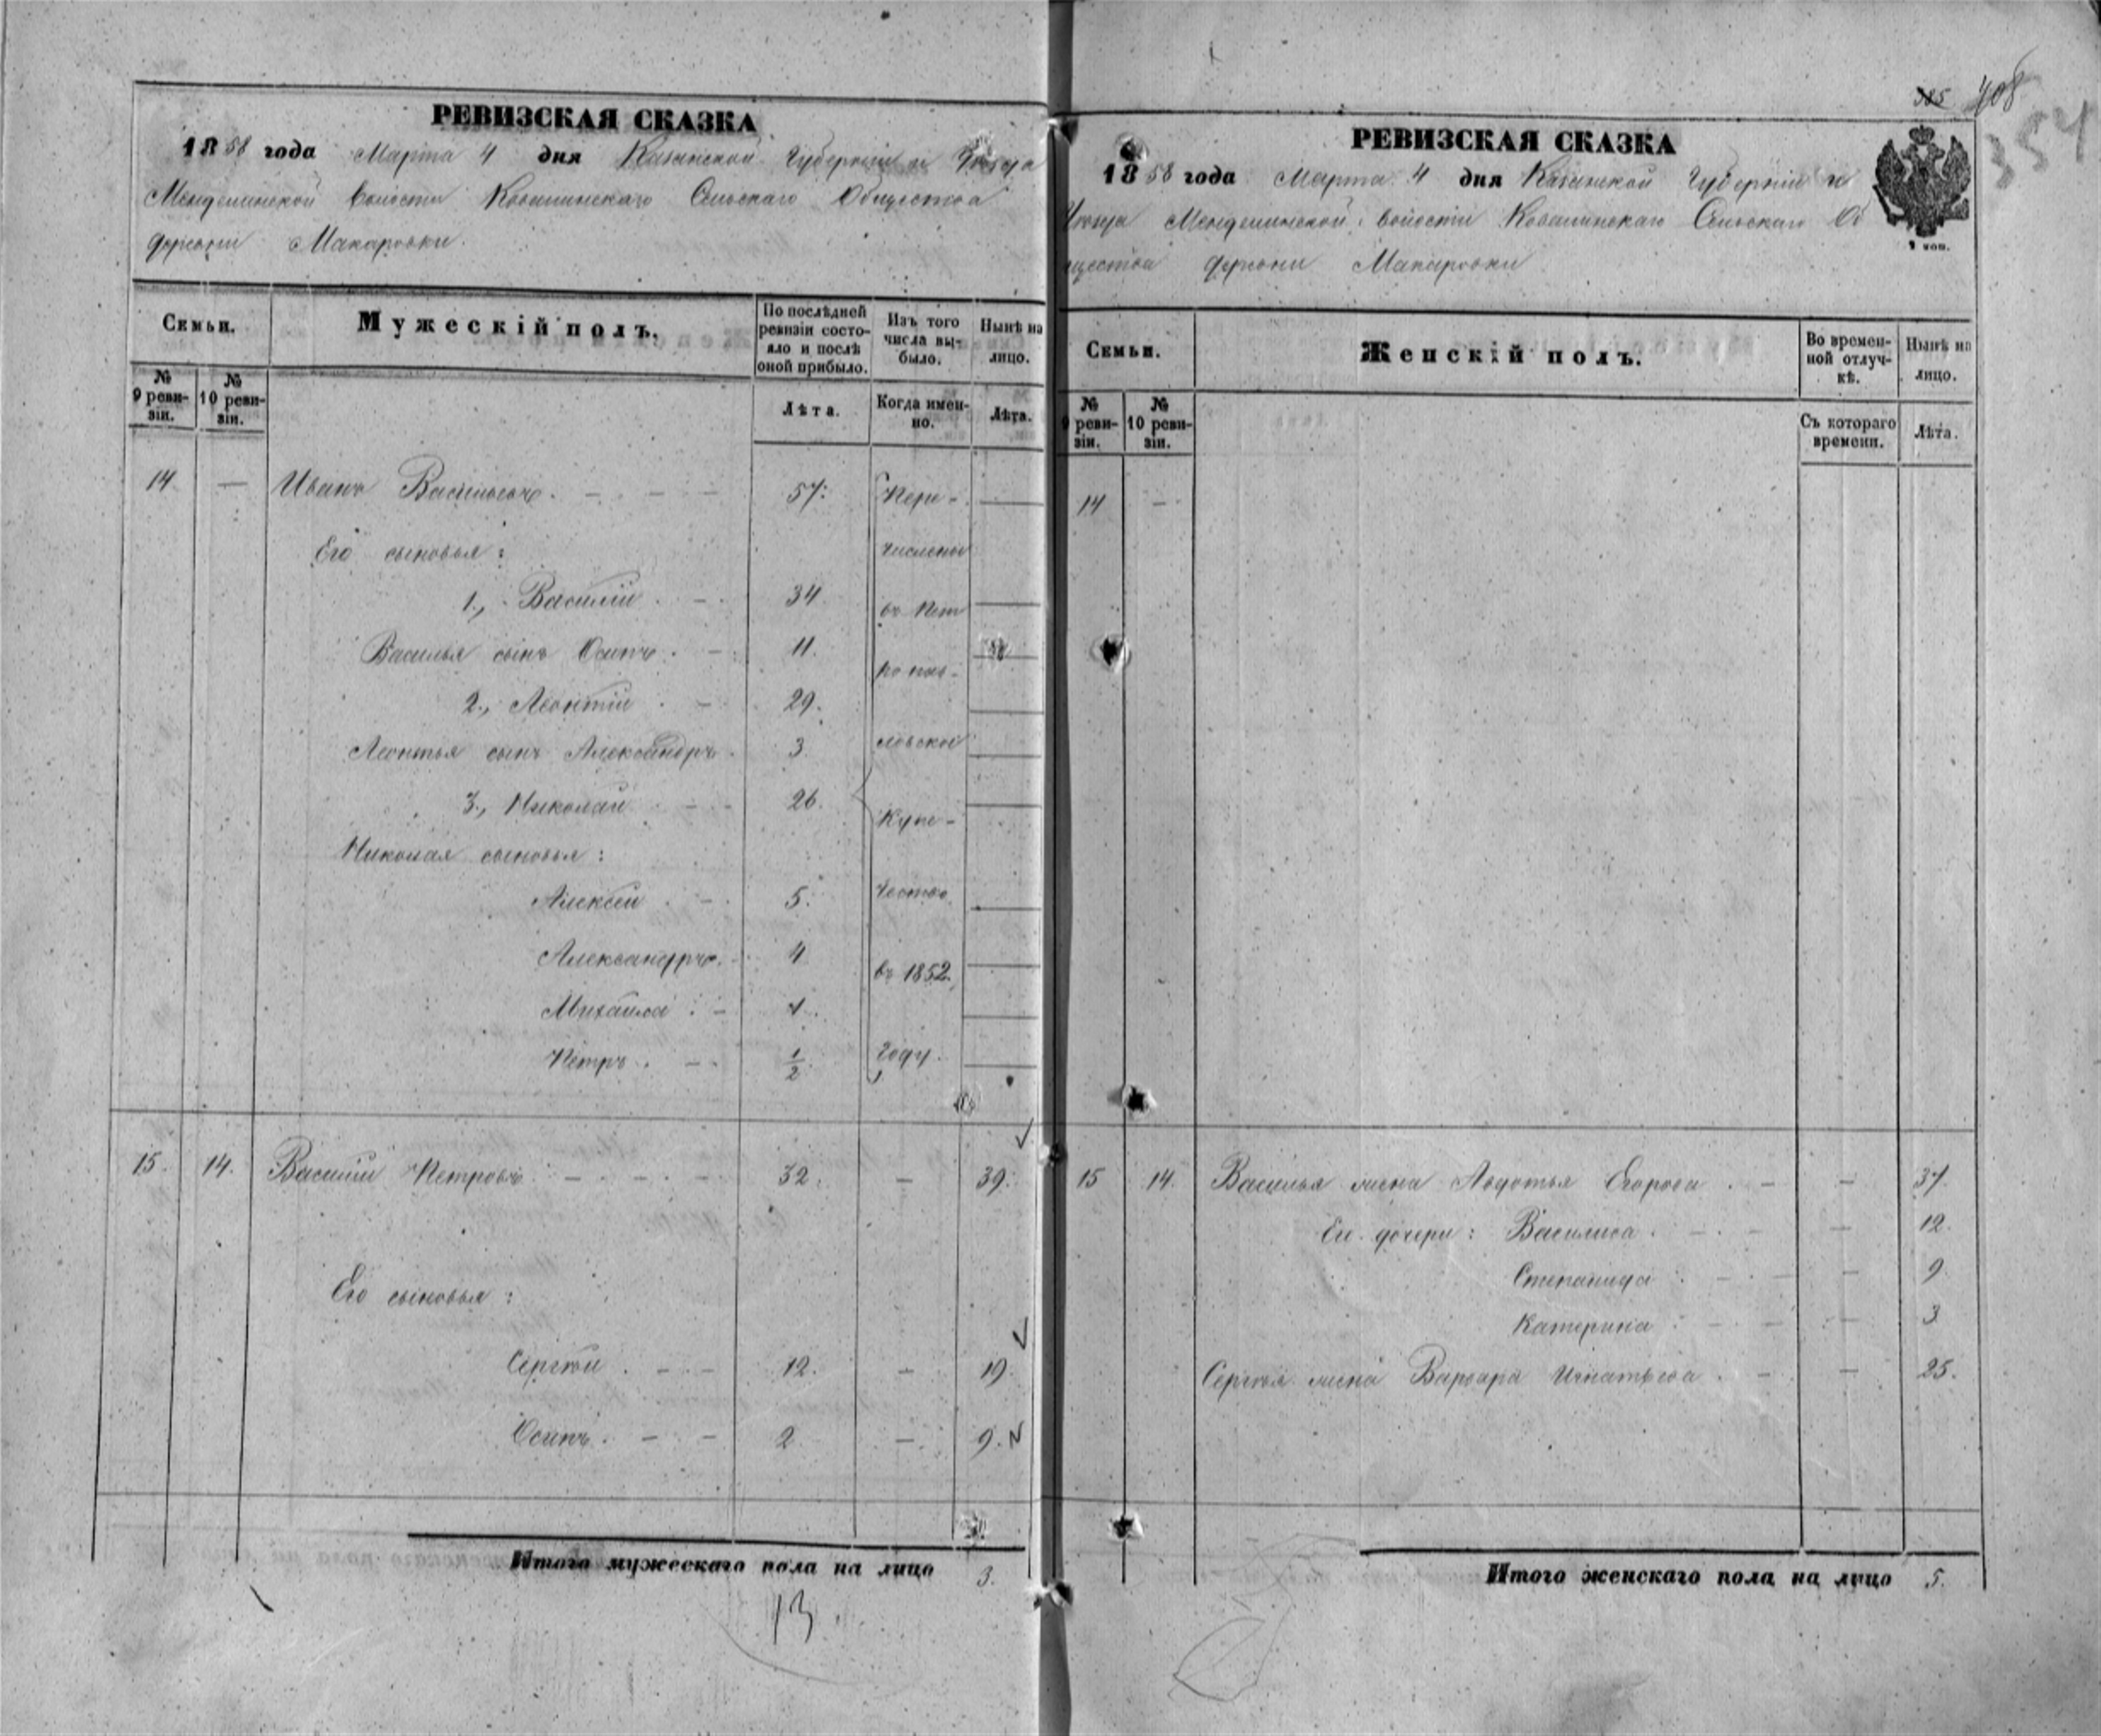 РЕВИЗСКАЯ СКАЗКА
1858 года Марта 4 дня Казанской Губерніи и Уѣзда
Менделинской волости Ковалинскаго Сельскаго Общества
деревни Макаровки.
Семьи.
Мужескій полъ.
По послѣдней ревизіи состояло и послѣ оной прибыло.
Изъ того числа выбыло.
Нынѣ на лицо.
№ 9 ревизіи.
№ 10 ревизіи.
Лѣта.
Когда именно.
Лѣта.
14 — Иванъ Васильевъ. — — — 57.
Его сыновья:
1., Василій — 34.
Василья сынъ Осипъ. — 11.
2., Леонтій — 29.
Леонтья сынъ Александръ. 3.
3., Николай — 26.
Николая сыновья:
Алексей — 5.
Александръ. 4
Михайла — 1.
Петръ. — 1/2
Пере-
численъ
въ Пет
ропав-
ловское
купе-
чество
въ 1852.
году.
15. 14. Василій Петровъ — — — 32. — 39.
Его сыновья:
Сергѣй — — 12. — 19.
Осипъ. — — 2 — 9.
Итого мужескаго пола на лицо 3.
13
385 408
354
РЕВИЗСКАЯ СКАЗКА
1858 года Марта 4 дня Казанской Губерніи и
Уѣзда Менделинской волости Ковалинскаго Сельскаго Об
щества деревни Макаровки
1 коп.
Семьи.
Женскій полъ.
Во временной отлучкѣ.
Нынѣ на лицо.
№ 9 ревизіи.
№ 10 ревизіи.
Съ котораго времени.
Лѣта.
14 —
15 14. Василья жена Авдотья Егорова — — 37
Ея дочери: Василиса — — 12.
Степанида — — 9
Катерина — — 3
Сергѣя жена Варвара Игнатьева — — 25.
Итого женскаго пола на лицо 5.